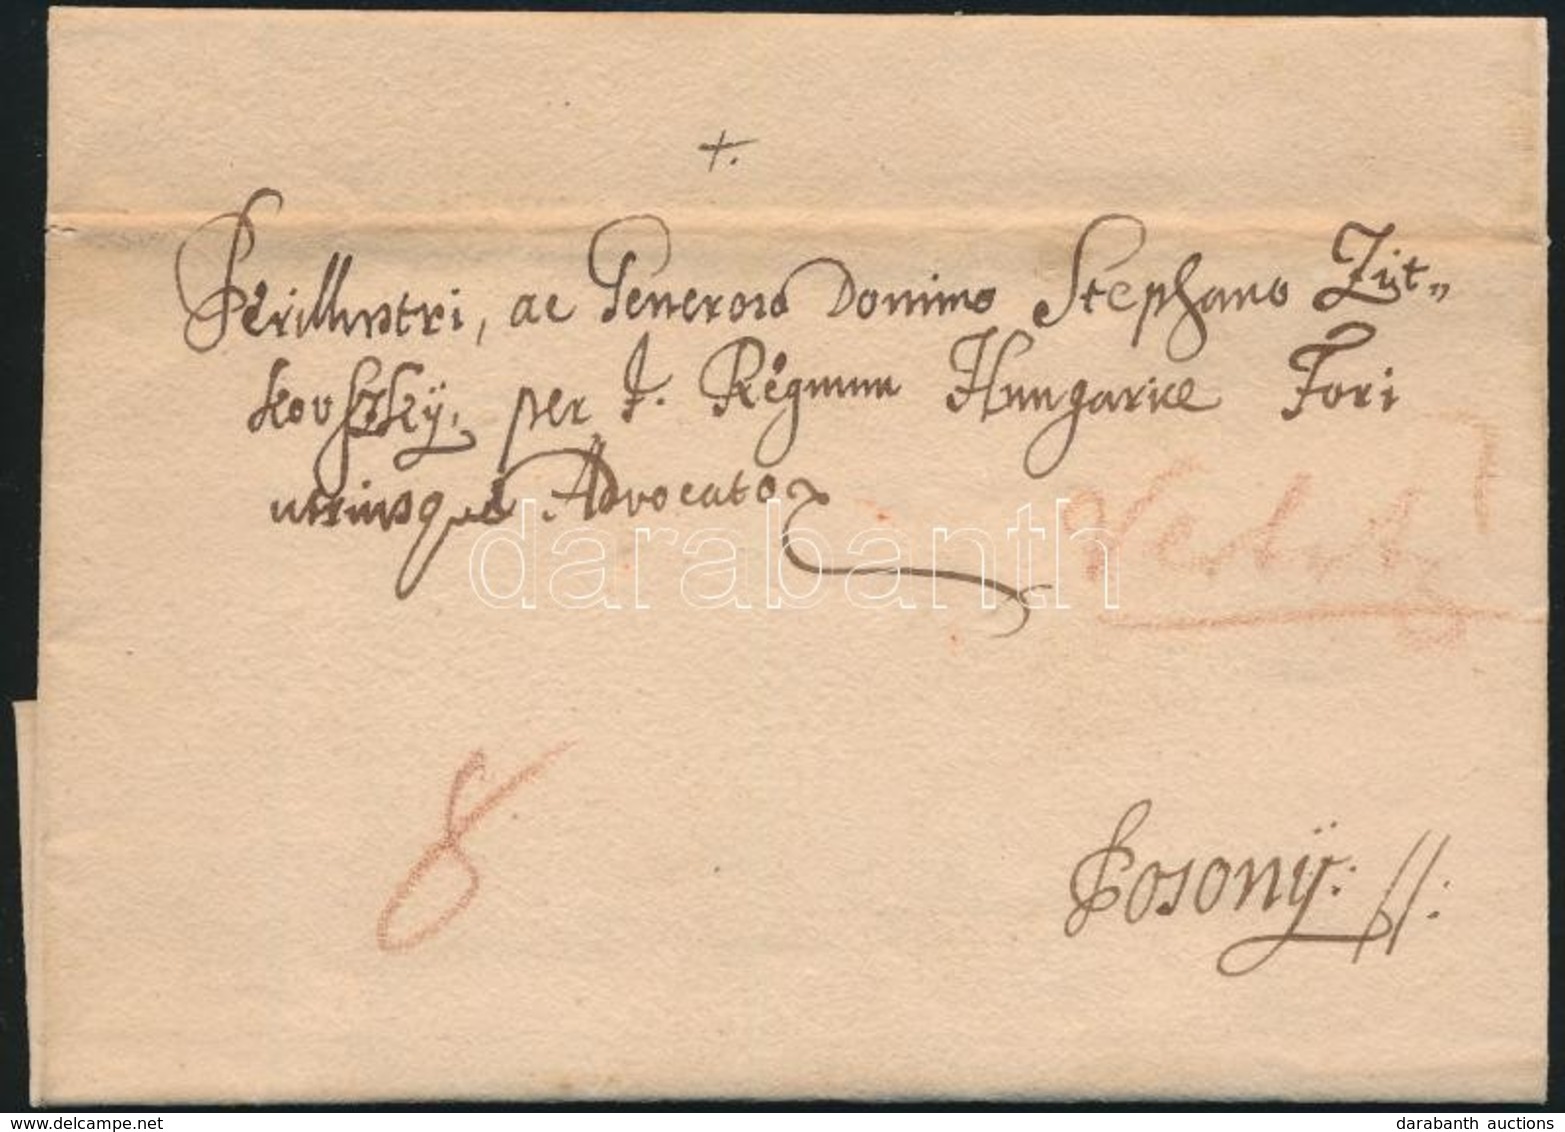 +.
Perillustri, ac Generoso Domino Stephano Zit„
kovszkÿ, per I. Regnum Hungariae Fori
utriusque Advocato
8
Posonÿ:
darabanth
delcampe.net
darabanth auctions